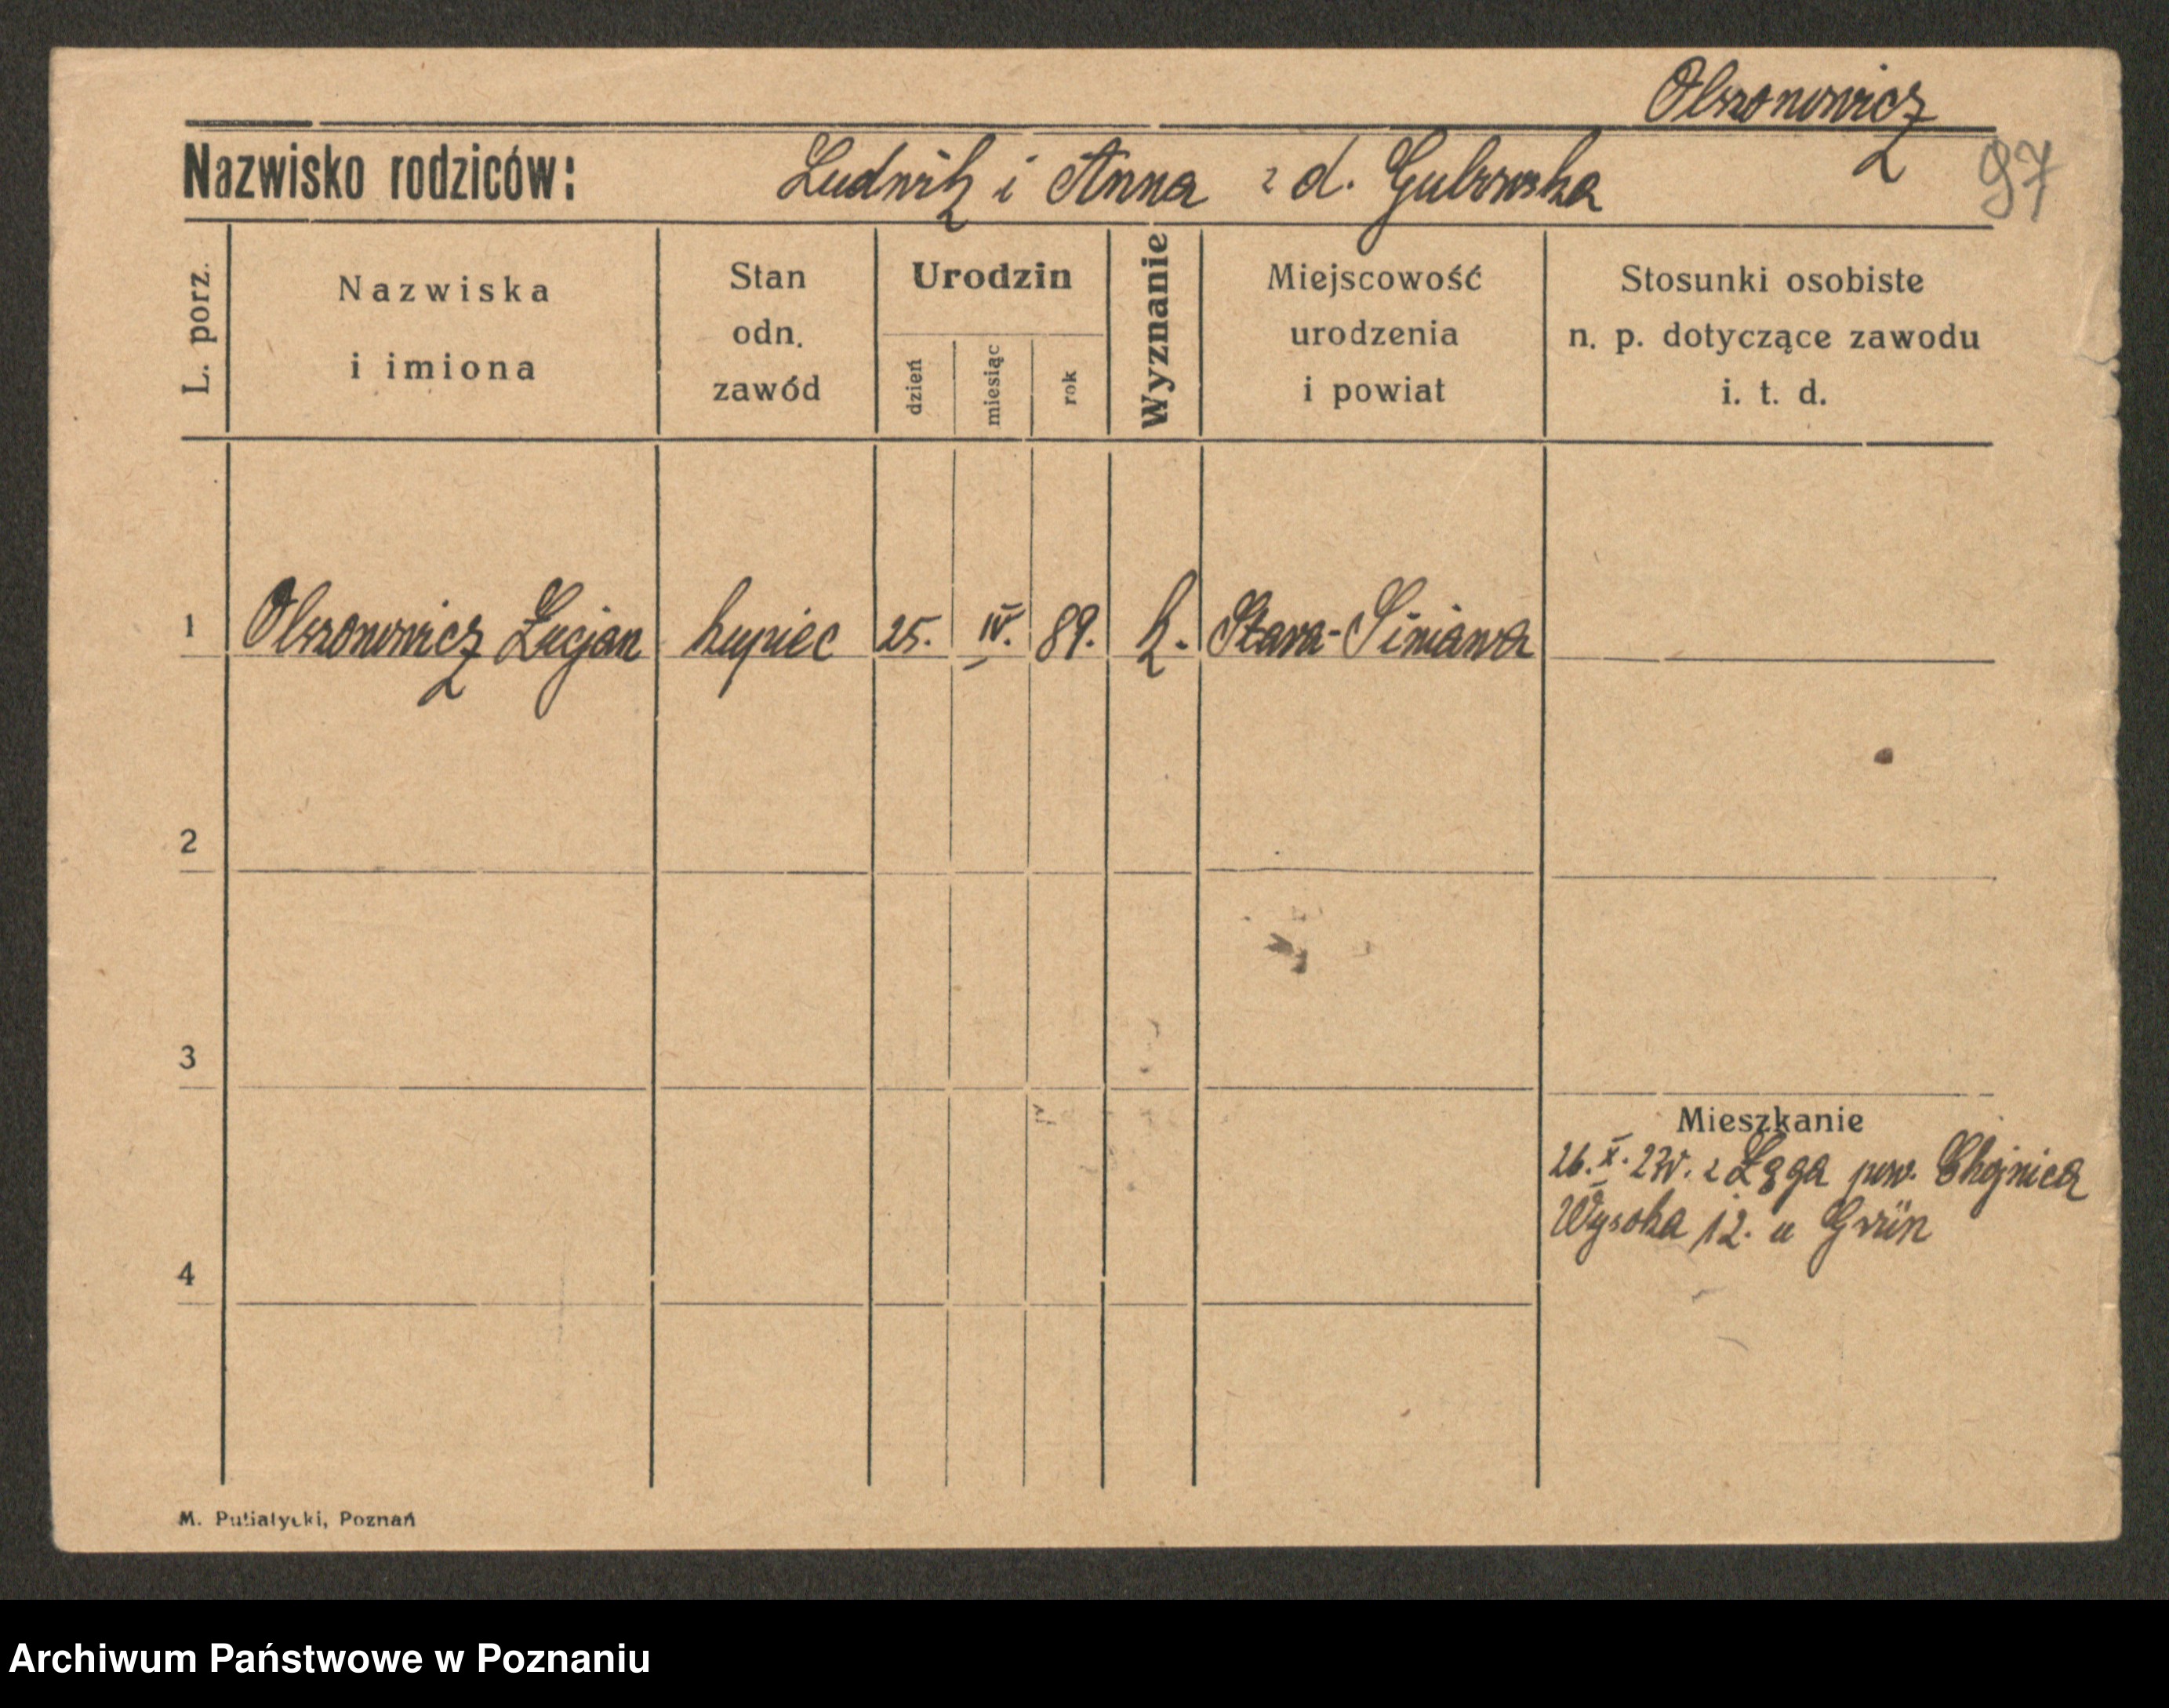 Olszonowicz
Nazwisko rodziców: Ludwik i Anna z d. Gubowska 97
L. porz. Nazwiska i imiona Stan odn. zawód Urodzin dzień miesiąc rok Wyznanie Miejscowość urodzenia i powiat Stosunki osobiste n. p. dotyczące zawodu i. t. d.
1 Olszonowicz Lucjan kupiec 25. IV. 89. k. Stara-Siniawa
2
3
Mieszkanie
26. X. 23r. z Łęga pow. Chojnica
Wysoka 12. u Grün
4
M. Putiatycki, Poznań
Archiwum Państwowe w Poznaniu